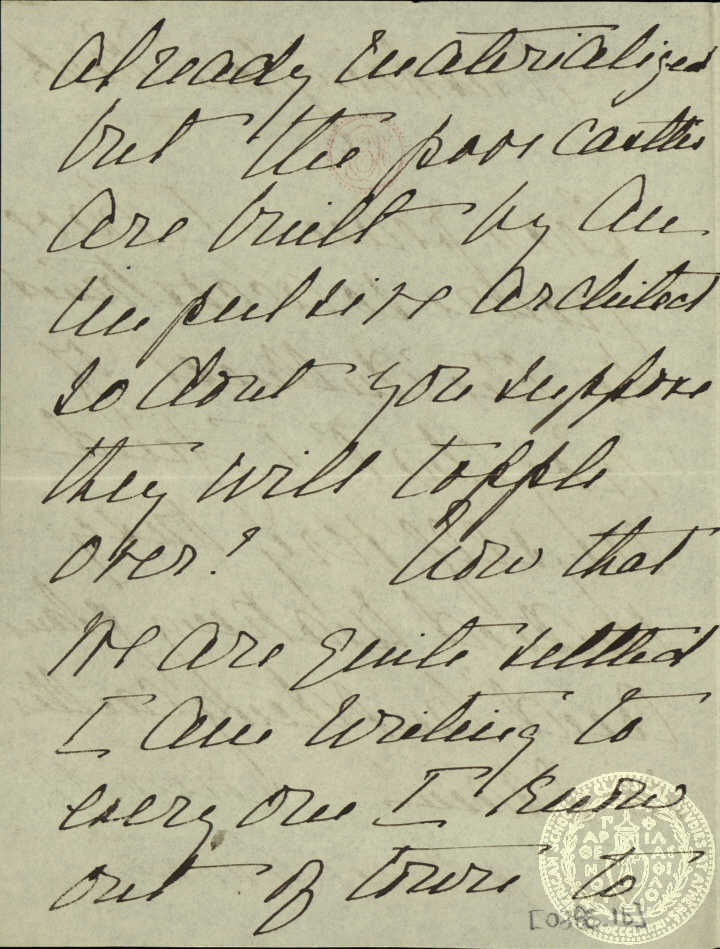 already materialized
but the poor castles
are built by an
impulsive architect
so dont you suppose
they will topple
over? Now that
we are quite settled
I am writing to
every one I know
out of town to